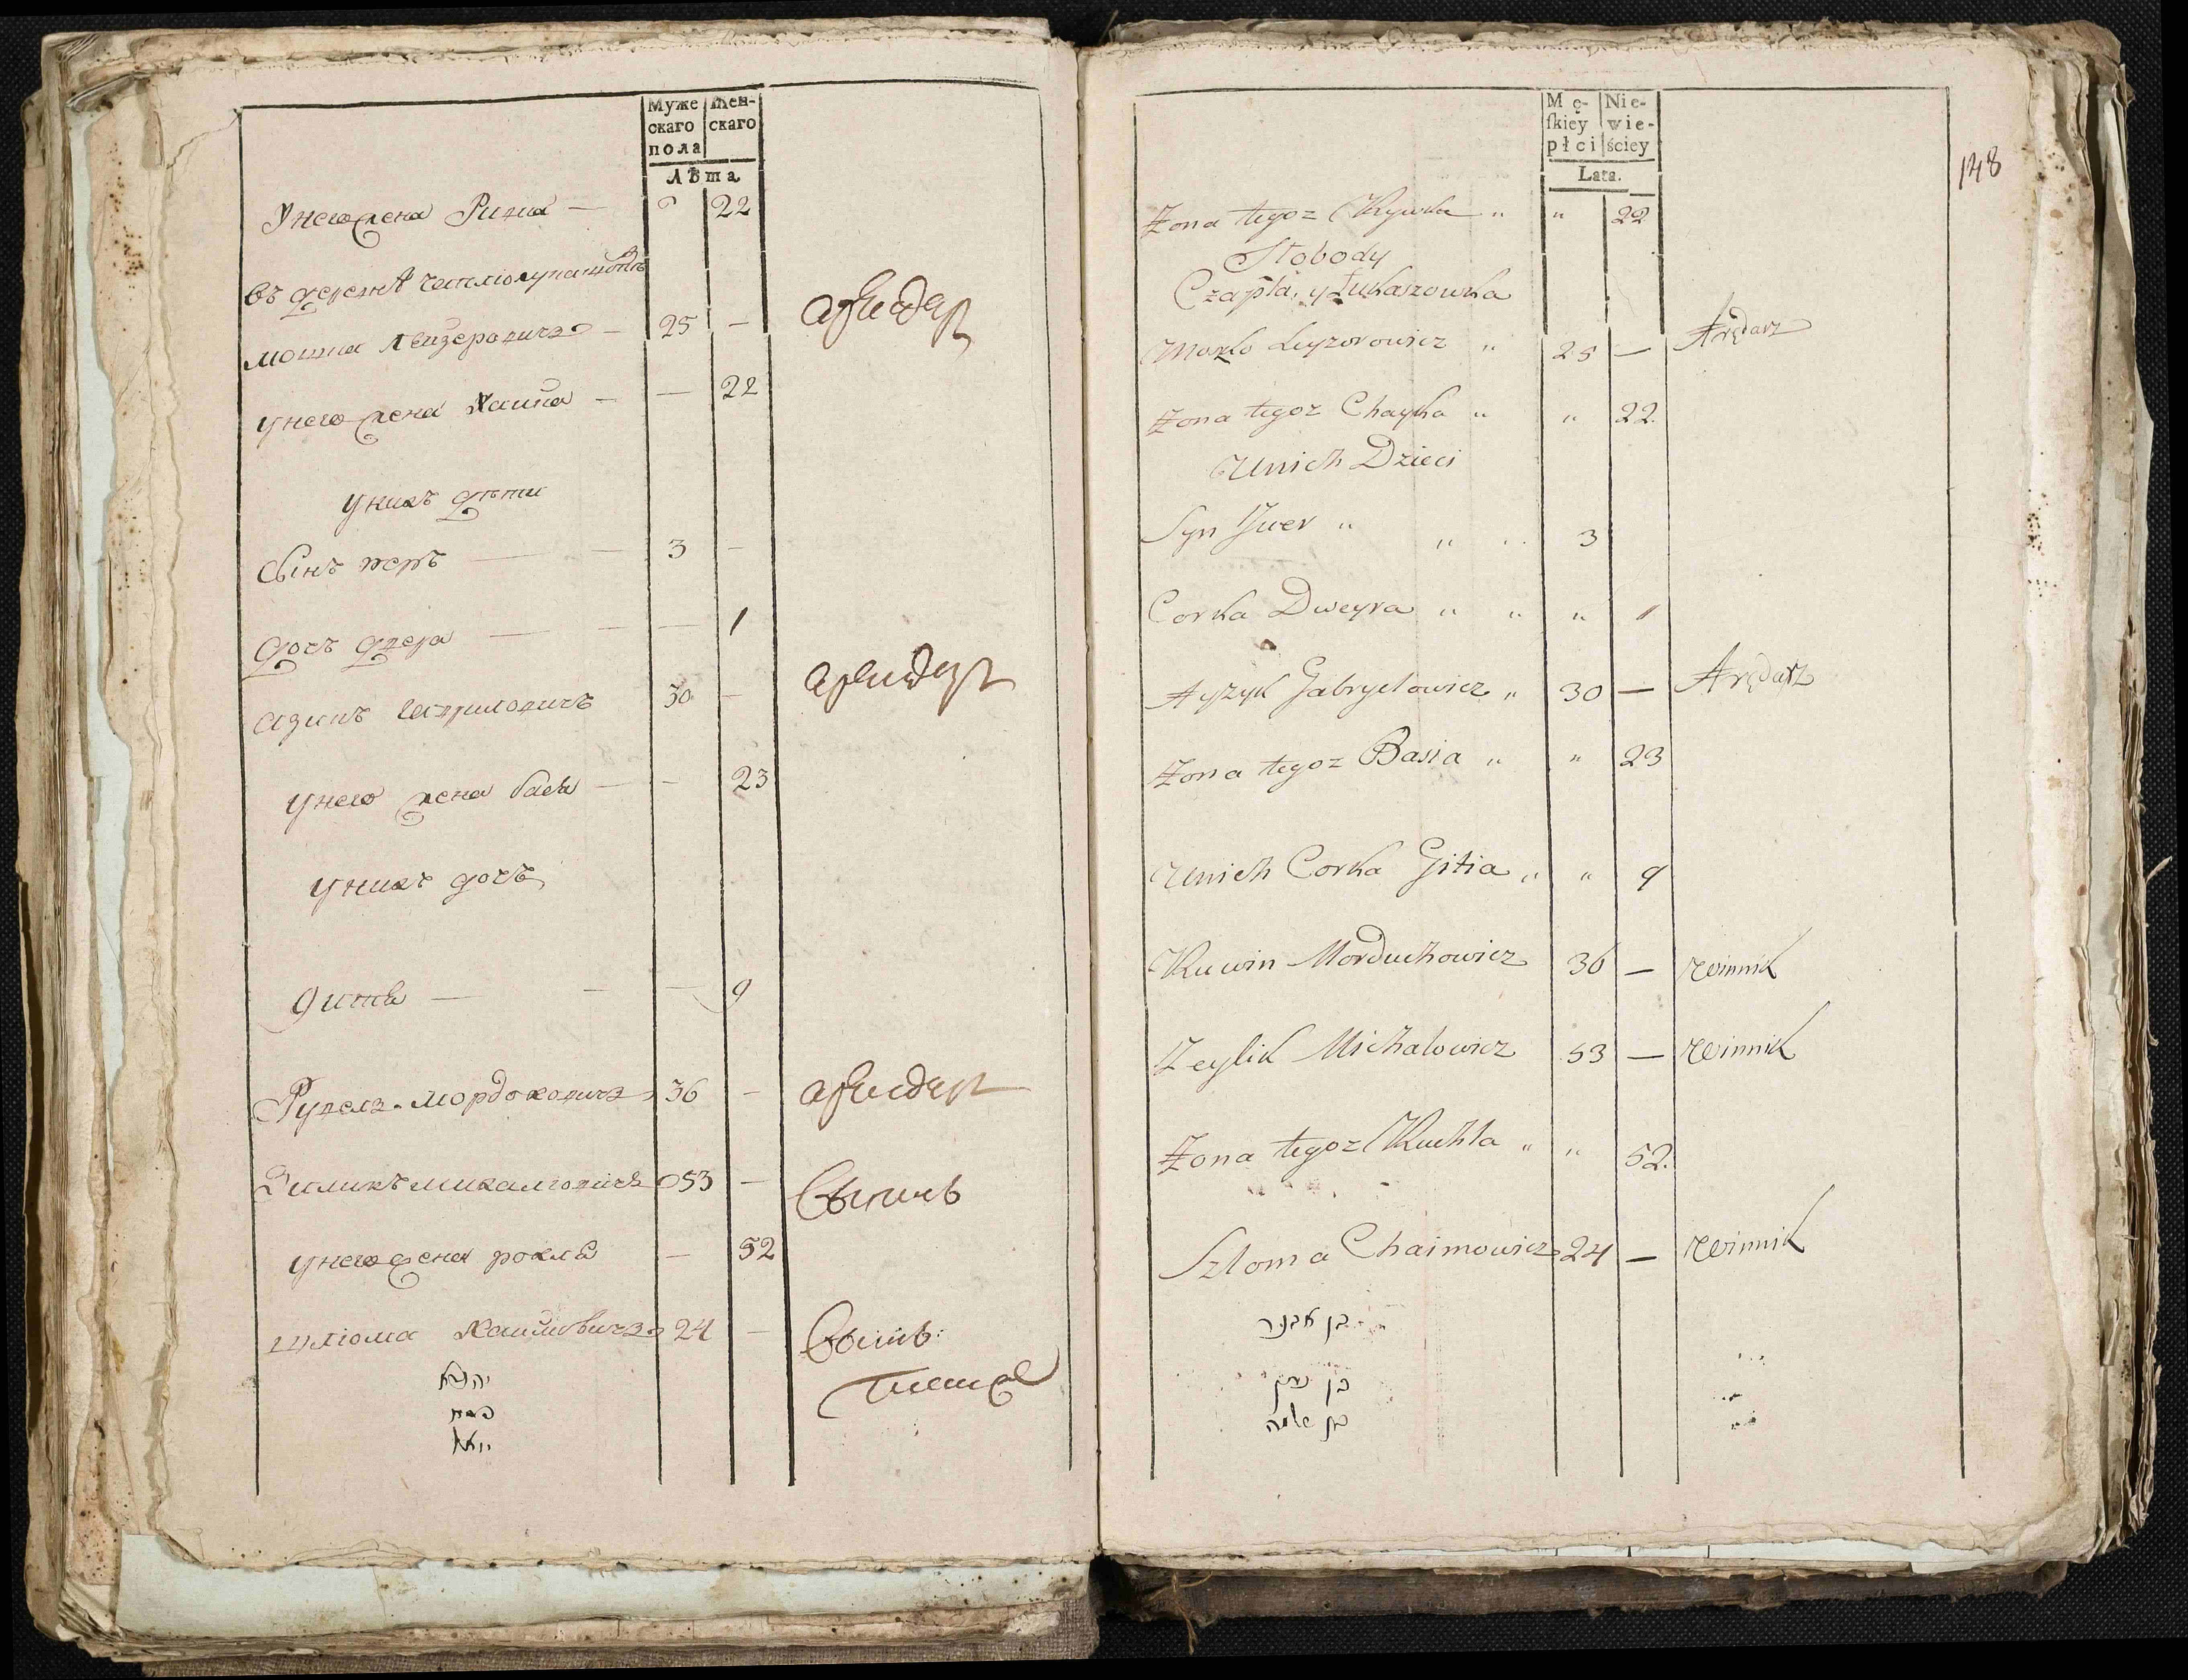 Муже скаго пола
Жен- скаго
Лѣта
У него жена Ривка — 22
въ деревнѣ
Мошка Лейзеровичъ — 25 — арендарь
у него жена Хайка — — 22
у нихъ дѣти
Сынъ — — 3 —
дочь двера — — — 1
Азикъ Гаврилович 30 — арендарь
у него жена бася — — 23
у нихъ дочь
Гитя — — — 9
Рувель Мордоховичъ 36 — арендарь
Зиликъ Михаліовичь 53 —
у него жена рохля — 52
Шліома Хаимовичъ 24 —
Mę- skiey płci
Nie- wie- ściey
Lata.
148
Żona tegoz Rywka „ „ 22
Słobody
Czapla, y Łukaszowka
Moszko Leyzorowicz „ 25 — Arędarz
Żona tegoz Chayka „ „ 22.
U nich Dzieci
Syn „ „ „ 3
Corka Dweyra „ „ „ 1
Ayzyk Gabryelowicz „ 30 — Arędarz
Żona tegoz Basia „ „ 23
U nich Corka Gitia „ „ 9
Ruwin Morduchowicz 36 — Winnik
Zeylik Michalowicz 53 — Winnik
Żona tegoz Ruchla „ „ 52.
Szloma Chaimowicz 24 — Winnik